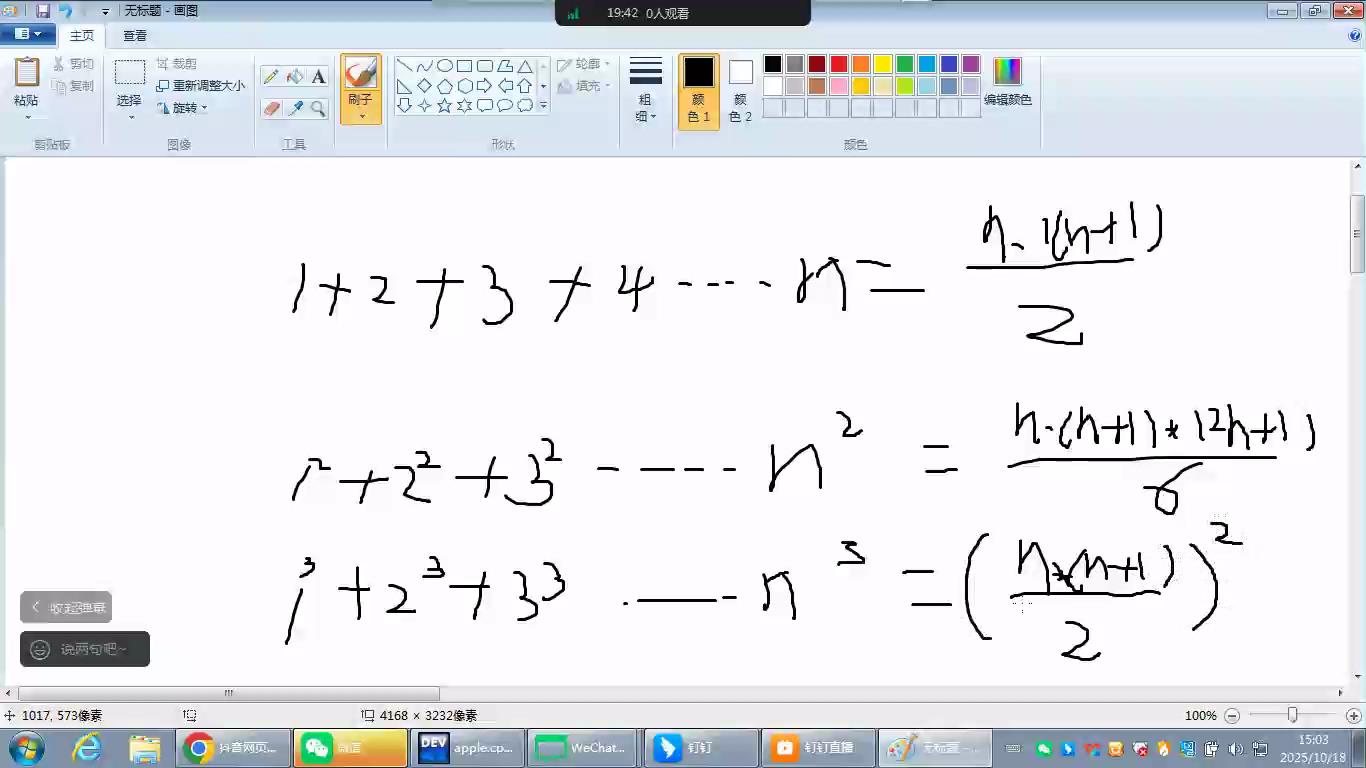 无标题 - 画图
19:42 0人观看
主页 查看
粘贴 剪切 复制 选择 裁剪 重新调整大小 旋转 A 刷子 轮廓 填充 粗细 颜色 1 颜色 2 编辑颜色
剪贴板 图像 工具 形状 颜色
n·1(n+1)
1+2+3+4 ····· n=
2
n·(n+1)*(2n+1)
1²+2²+3² ------ n² =
6
1³+2³+3³ .—— n³ = (n*(n+1))²
2
收起弹幕
说两句吧~
1017, 573像素 4168 × 3232像素 100%
抖音网页... 微信 DEV apple.cp... WeChat... 钉钉 钉钉直播 无标题 -... 15:03
2025/10/18